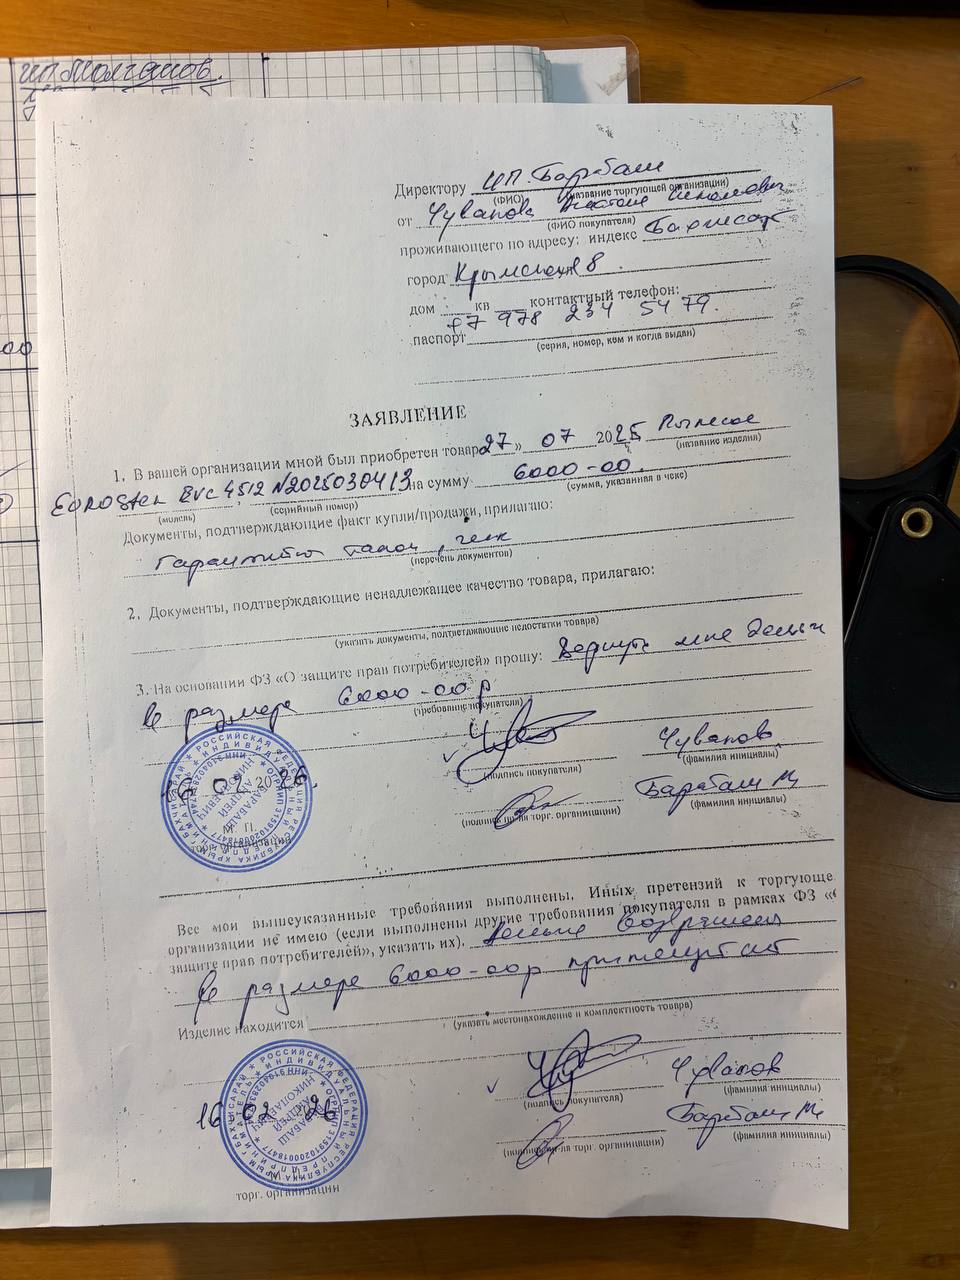 ИП Молчанов.
Директору ИП. Барабаш
(ФИО) (название торгующей организации)
от Чуванов
(ФИО покупателя)
проживающего по адресу: индекс
город Крымская 8.
дом кв контактный телефон:
+7 978 234 54 79.
паспорт
(серия, номер, кем и когда выдан)
ЗАЯВЛЕНИЕ
1. В вашей организации мной был приобретен товар 27 » 07 2025 Пылесос
(название изделия)
Eurostek EVC 4512 N2025030413 на сумму 6000-00.
(модель) (серийный номер) (сумма, указанная в чеке)
Документы, подтверждающие факт купли/продажи, прилагаю:
талон, чек
(перечень документов)
2. Документы, подтверждающие ненадлежащее качество товара, прилагаю:
(указать документы, подтверждающие недостатки товара)
3. На основании ФЗ «О защите прав потребителей» прошу: Вернуть мне деньги
в размере 6000-00 р
(требование покупателя)
Чуванов
(подпись покупателя) (фамилия инициалы)
16 02 2026.
Барабаш
(подпись пр-ля торг. организации) (фамилия инициалы)
М П
торг. организации
РОССИЙСКАЯ ФЕДЕРАЦИЯ РЕСПУБЛИКА КРЫМ Г БАХЧИСАРАЙ
ИНДИВИДУАЛЬНЫЙ ПРЕДПРИНИМАТЕЛЬ
ОГРНИП 315910200018477
БАРАБАШ
АНДРЕЙ
НИКОЛАЕВИЧ
Все мои вышеуказанные требования выполнены. Иных претензий к торгующе
организации не имею (если выполнены другие требования покупателя в рамках ФЗ «
защите прав потребителей», указать их). Деньги
в размере 6000-00р
Изделие находится
(указать местонахождение и комплектность товара)
Чуванов
(подпись покупателя) (фамилия инициалы)
16 02 26
Барабаш
(подпись пр-ля торг. организации) (фамилия инициалы)
М П
торг. организации
РОССИЙСКАЯ ФЕДЕРАЦИЯ РЕСПУБЛИКА КРЫМ Г БАХЧИСАРАЙ
ИНДИВИДУАЛЬНЫЙ ПРЕДПРИНИМАТЕЛЬ
ОГРНИП 315910200018477
БАРАБАШ
АНДРЕЙ
НИКОЛАЕВИЧ